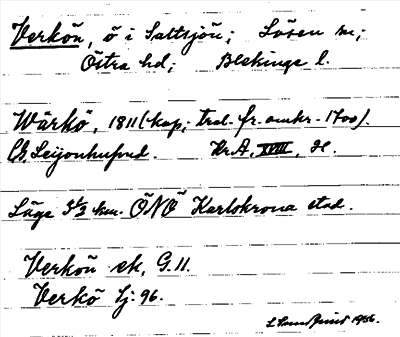 Verkön, ö i Saltsjön; Lösen sn;
Östra hd; Blekinge l.
Wärkö, 1811 (kop; trol. fr. omkr. 1700).
Leijonhufvud. KrA, XVIII, H.
Läge 3½ km. ÖNÖ Karlskrona stad.
Verkön ek, G. 11.
Verkö Gj: 96.
1956.